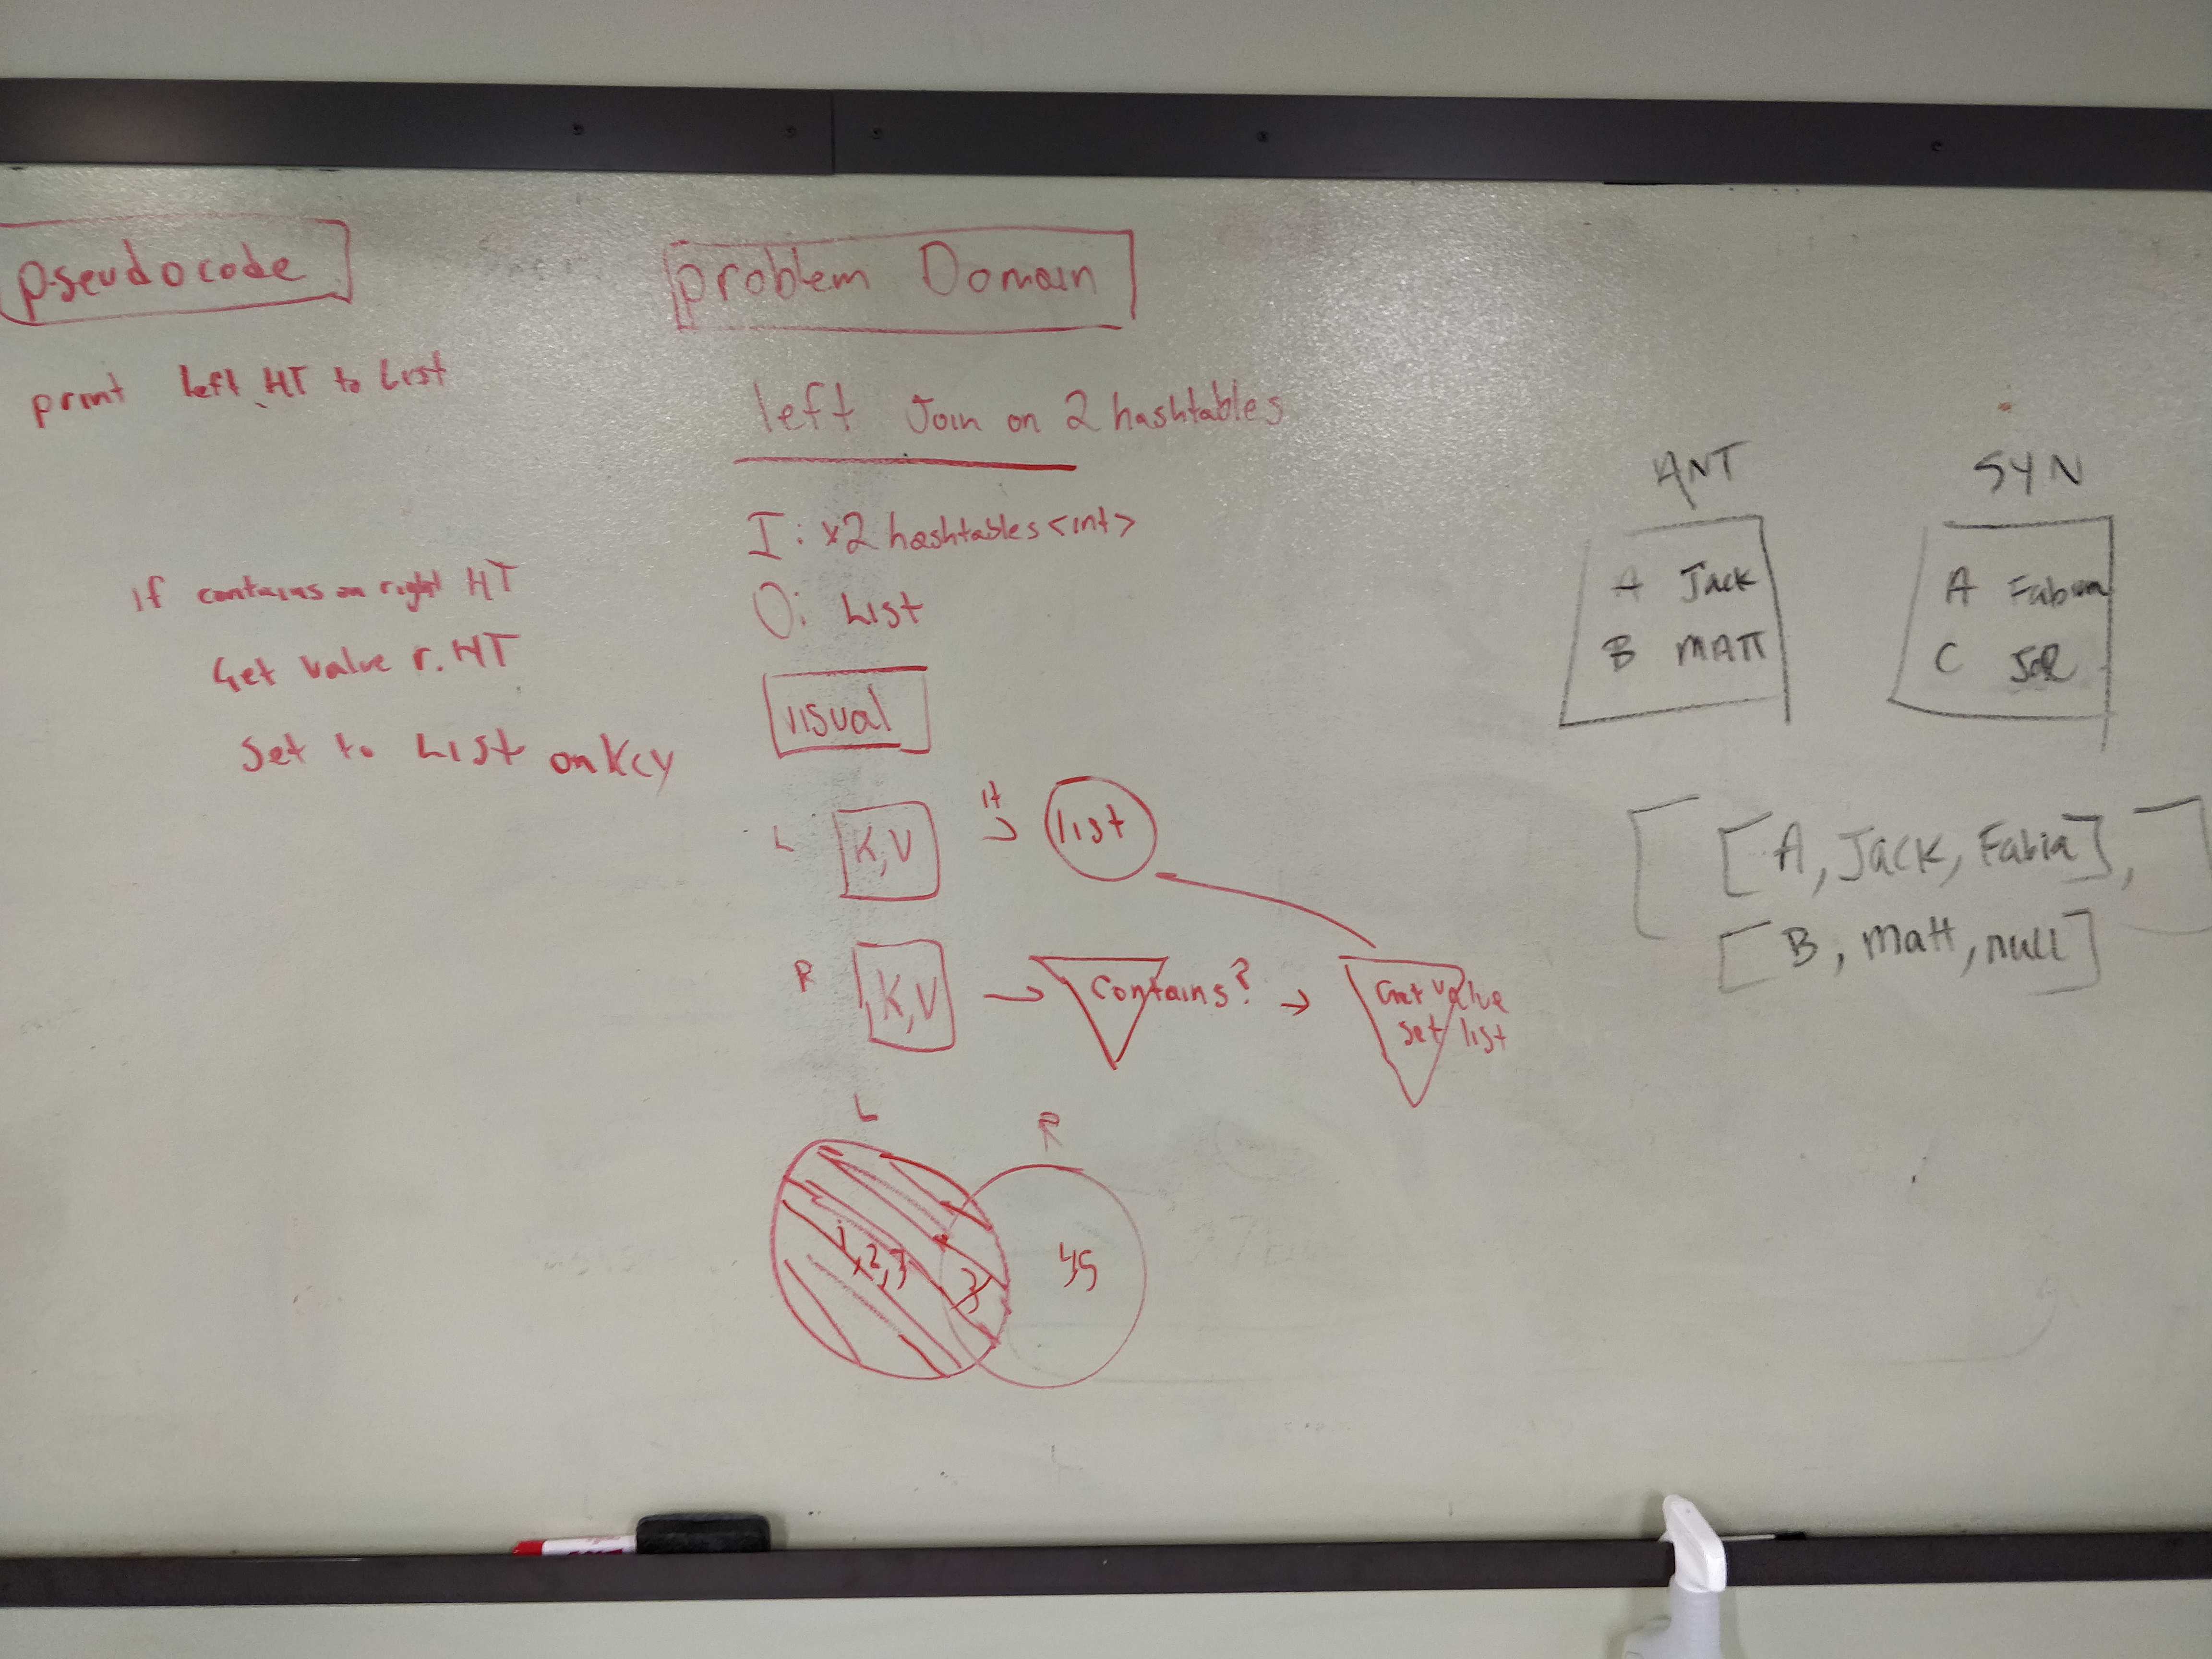 pseudocode
print left HT to List
if contains on right HT
Get value r. HT
Set to List on Key
problem Domain
left Join on 2 hashtables
I: x2 hashtables <int>
O: List
visual
L K,V list
R K,V Contains? Get value
set list
L R
1,2,3 3 45
ANT SYN
A Jack A Fabian
B MATT C
[ [A, Jack, Fabia], ]
[B, Matt, null]